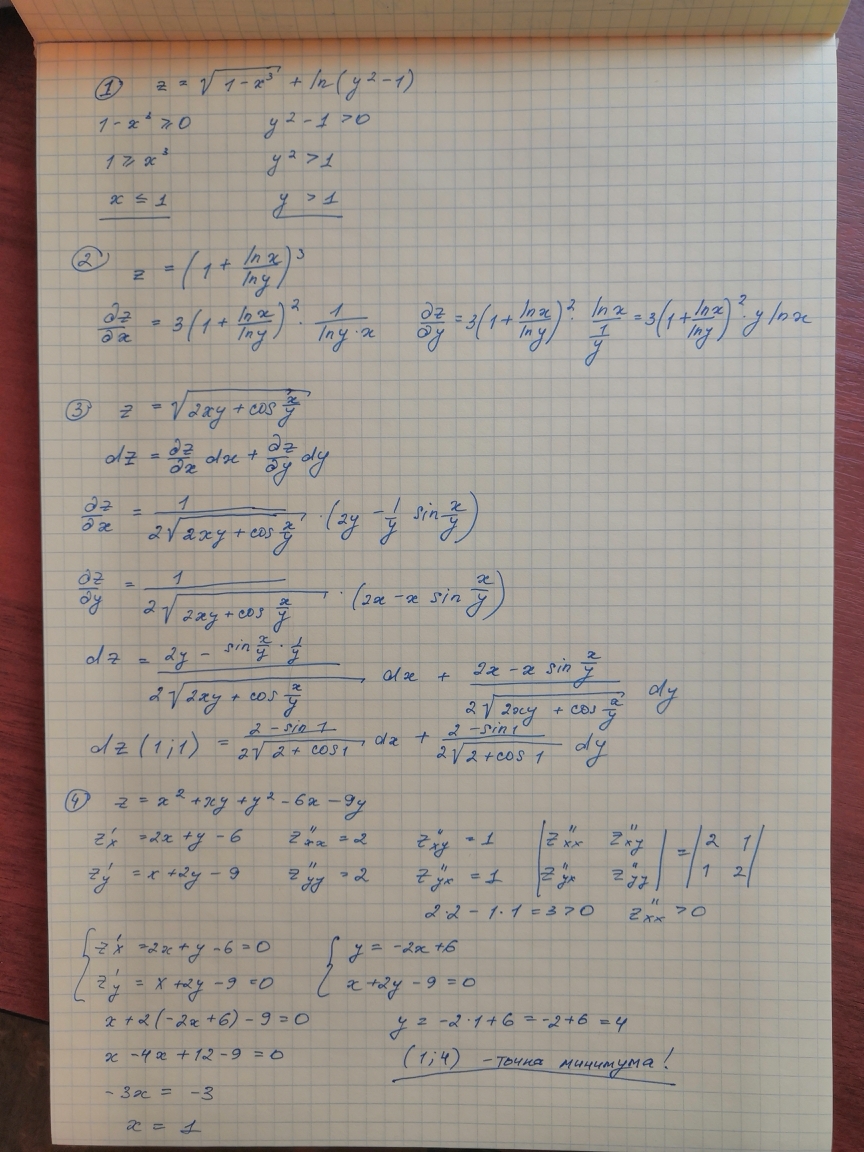 ① z = √(1-x³) + ln(y²-1)
1-x³ ⩾ 0 y²-1 > 0
1 ⩾ x³ y² > 1
x ≤ 1 y > 1
② z = (1 + lnx/lny)³
∂z/∂x = 3(1 + lnx/lny)² · 1/(lny·x) ∂z/∂y = 3(1 + lnx/lny)² · lnx/(1/y) = 3(1 + lnx/lny)² · y lnx
③ z = √(2xy + cos x/y)
dz = ∂z/∂x dx + ∂z/∂y dy
∂z/∂x = 1/(2√(2xy + cos x/y)) · (2y - 1/y sin x/y)
∂z/∂y = 1/(2√(2xy + cos x/y)) · (2x - x sin x/y)
dz = (2y - sin x/y · 1/y)/(2√(2xy + cos x/y)) dx + (2x - x sin x/y)/(2√(2xy + cos x/y)) dy
dz(1;1) = (2 - sin 1)/(2√(2 + cos 1)) dx + (2 - sin 1)/(2√(2 + cos 1)) dy
④ z = x² + xy + y² - 6x - 9y
z'x = 2x + y - 6 z''xx = 2 z''xy = 1 |z''xx z''xy| = |2 1|
z'y = x + 2y - 9 z''yy = 2 z''yx = 1 |z''yx z''yy| |1 2|
2·2 - 1·1 = 3 > 0 z''xx > 0
{ z'x = 2x + y - 6 = 0 { y = -2x + 6
z'y = x + 2y - 9 = 0 x + 2y - 9 = 0
x + 2(-2x + 6) - 9 = 0 y = -2·1 + 6 = -2 + 6 = 4
x - 4x + 12 - 9 = 0 (1;4) - точка минимума!
-3x = -3
x = 1